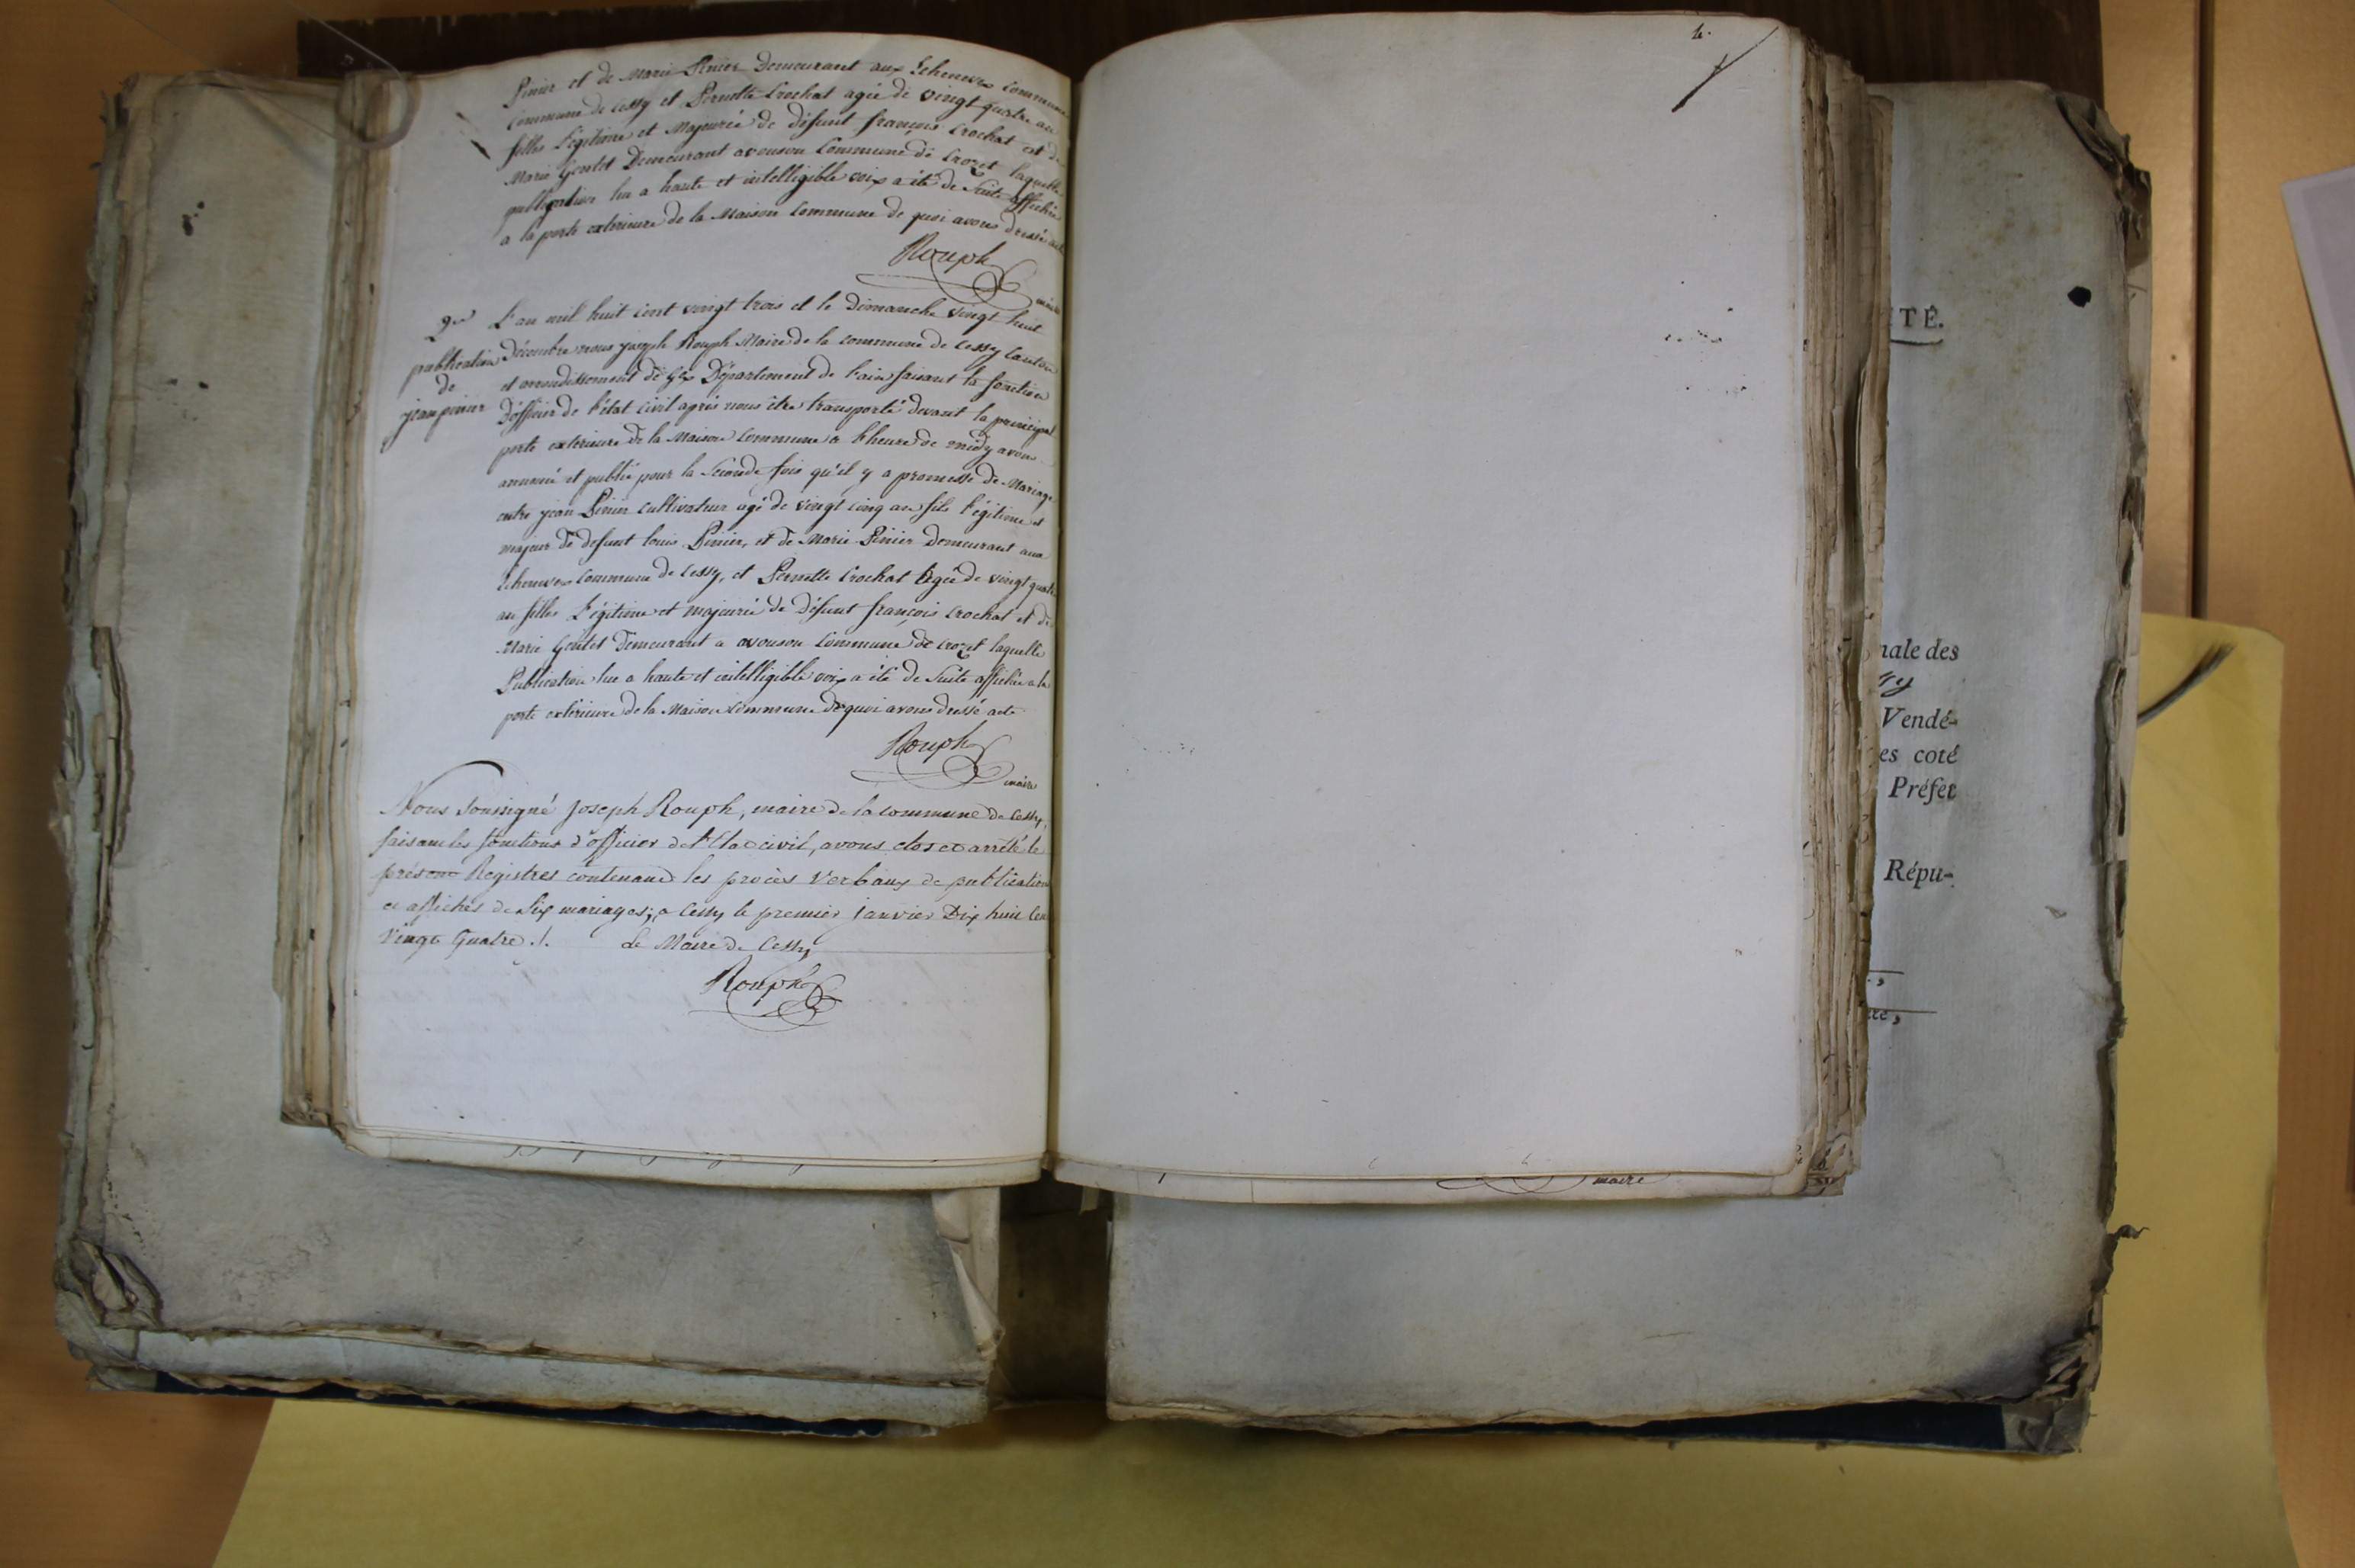 Pinier et de Marie Pinier Demeurant aux commune
commune de Cessy et Pernette Crochat agée de vingt quatre an
filles légitime et Majeurée de défunt françois Crochat et de
Marie Gentet Demeurant avouson Commune de Crozet laquelle
publication lue a haute et intelligible voix a été de Suite affichée
a la porte extérieure de la Maison commune de quoi avons dressé acte
Rouph
maire
2me
publication
de
jean pinier
L'an mil huit cent vingt trois et le Dimanche vingt huit
Décembre nous joseph Rouph Maire de la commune de Cessy Canton
et arrondissement de Gex Département de l'ain faisant la fonction
D'officier de l'état civil après nous être transporté devant la principal
porte extérieure de la Maison commune a l'heure de midy avons
annoncé et publié pour la Seconde fois qu'il y a promesse de Mariage
entre jean Pinier cultivateur agé de vingt cinq an fils légitime et
majeur de defunt louis Pinier, et de Marie Pinier Demeurant aux
commune de Cessy, et Pernette Crochat Agée de vingt quatre
an filles légitime et majeurée de Défunt françois Crochat et de
Marie Gentet Demeurant a avouson Commune de Crozet laquelle
Publication lue a haute et intelligible voix a été de Suite affichée a la
porte extérieure de la Maison commune De quoi avons dressé acte
Rouph
maire
Nous Soussigné Joseph Rouph, maire de la commune de Cessy,
faisant les fonctions d'officier de l'Etat civil, avons clos et arrêté le
présent Registres contenant les procès Verbaux de publication
et affiches de Six mariages; a Cessy le premier janvier Dix huit Cent
Vingt Quatre ./.
Le Maire de Cessy
Rouph
4.
maire
ITÉ.
nale des
Vendé-
es coté
Préfet
Répu-